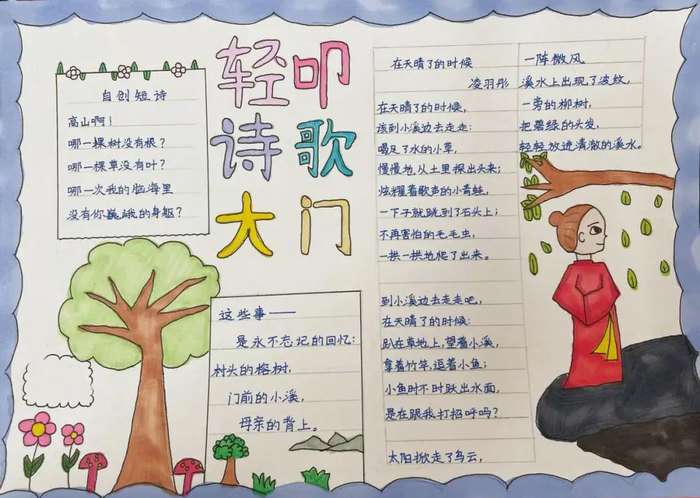 轻叩
诗歌
大门
自创短诗
高山啊！
哪一棵树没有根？
哪一棵草没有叶？
哪一次我的脑海里
没有你巍峨的身躯？
这些事——
是永不忘记的回忆：
村头的榕树，
门前的小溪，
母亲的背上。
在天晴了的时候
凌羽彤
在天晴了的时候，
该到小溪边去走走：
喝足了水的小草，
慢慢地从土里探出头来；
炫耀着歌声的小青蛙，
一下子就跳到了石头上；
不再害怕的毛毛虫，
一拱一拱地爬了出来。
到小溪边去走走吧，
在天晴了的时候：
趴在草地上，望着小溪，
拿着竹竿，逗着小鱼；
小鱼时不时跃出水面，
是在跟我打招呼吗？
太阳掀走了乌云，
一阵微风，
溪水上出现了波纹，
一旁的柳树，
把碧绿的头发，
轻轻放进清澈的溪水。